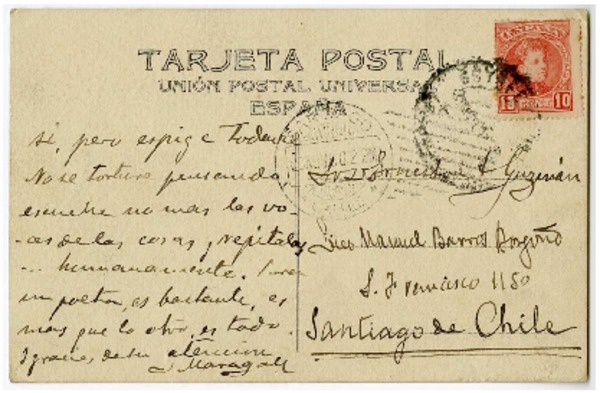 TARJETA POSTAL
UNIÓN POSTAL UNIVERSAL
ESPAÑA
sí, pero espig e todavía
No se torture pensando,
escuche no mas las vo-
ces de las cosas, y repítalas
... humanamente. Para
un poeta, es bastante, es
mas que lo otro, es todo.
Y gracias de su atención
Maragall
Guzmán
Manuel Barros Borgoño
S. Francisco 1180
Santiago de Chile
10